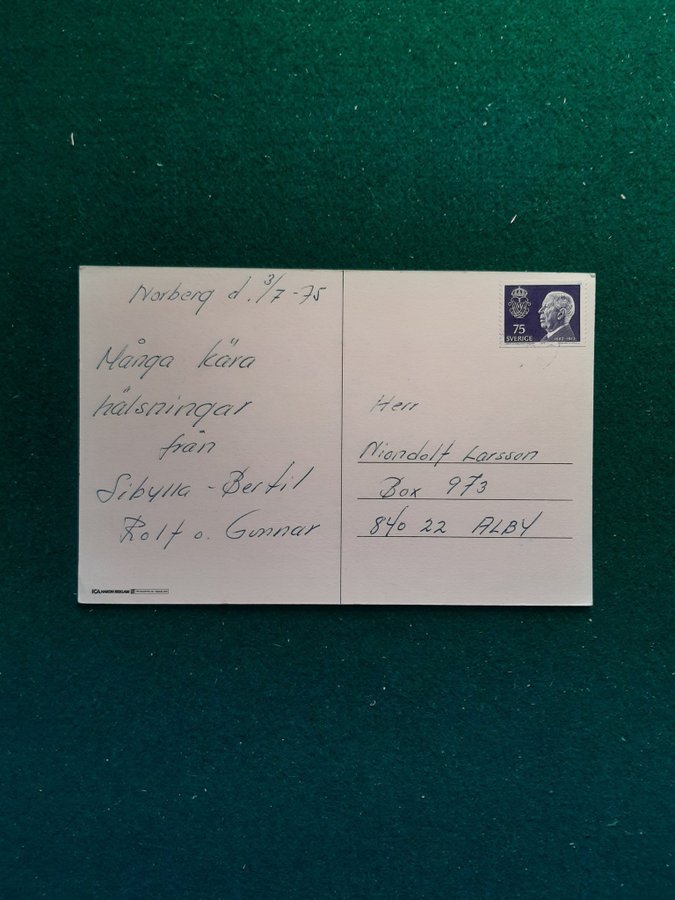 Norberg d. 3/7-75
Många kära
hälsningar
från
Sibylla - Bertil
Rolf o. Gunnar
ICA
75
SVERIGE
1882-1973
Herr
Niondolf Larsson
Box 973
840 22 ALBY